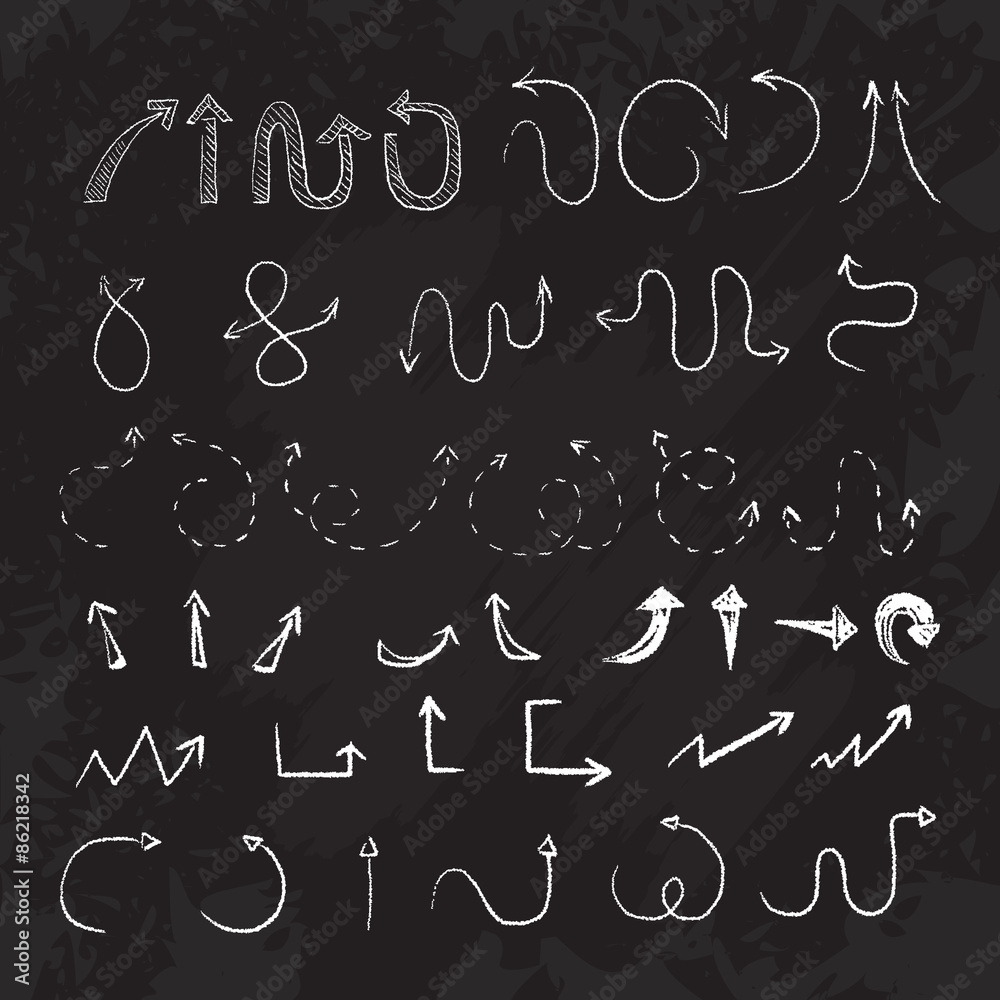 Adobe Stock | #86218342